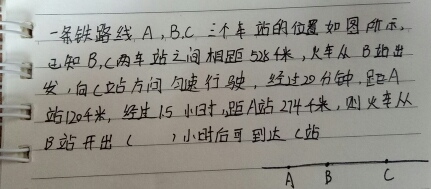 一条铁路线,A,B,C 三个车站的位置如图所示,
已知B,C两车站之间相距528千米,火车从B站出
发,向C站方向匀速行驶,经过20分钟,距A
站120千米,经过1.5小时,距A站274千米,则火车从
B站开出( )小时后可到达C站
A B C